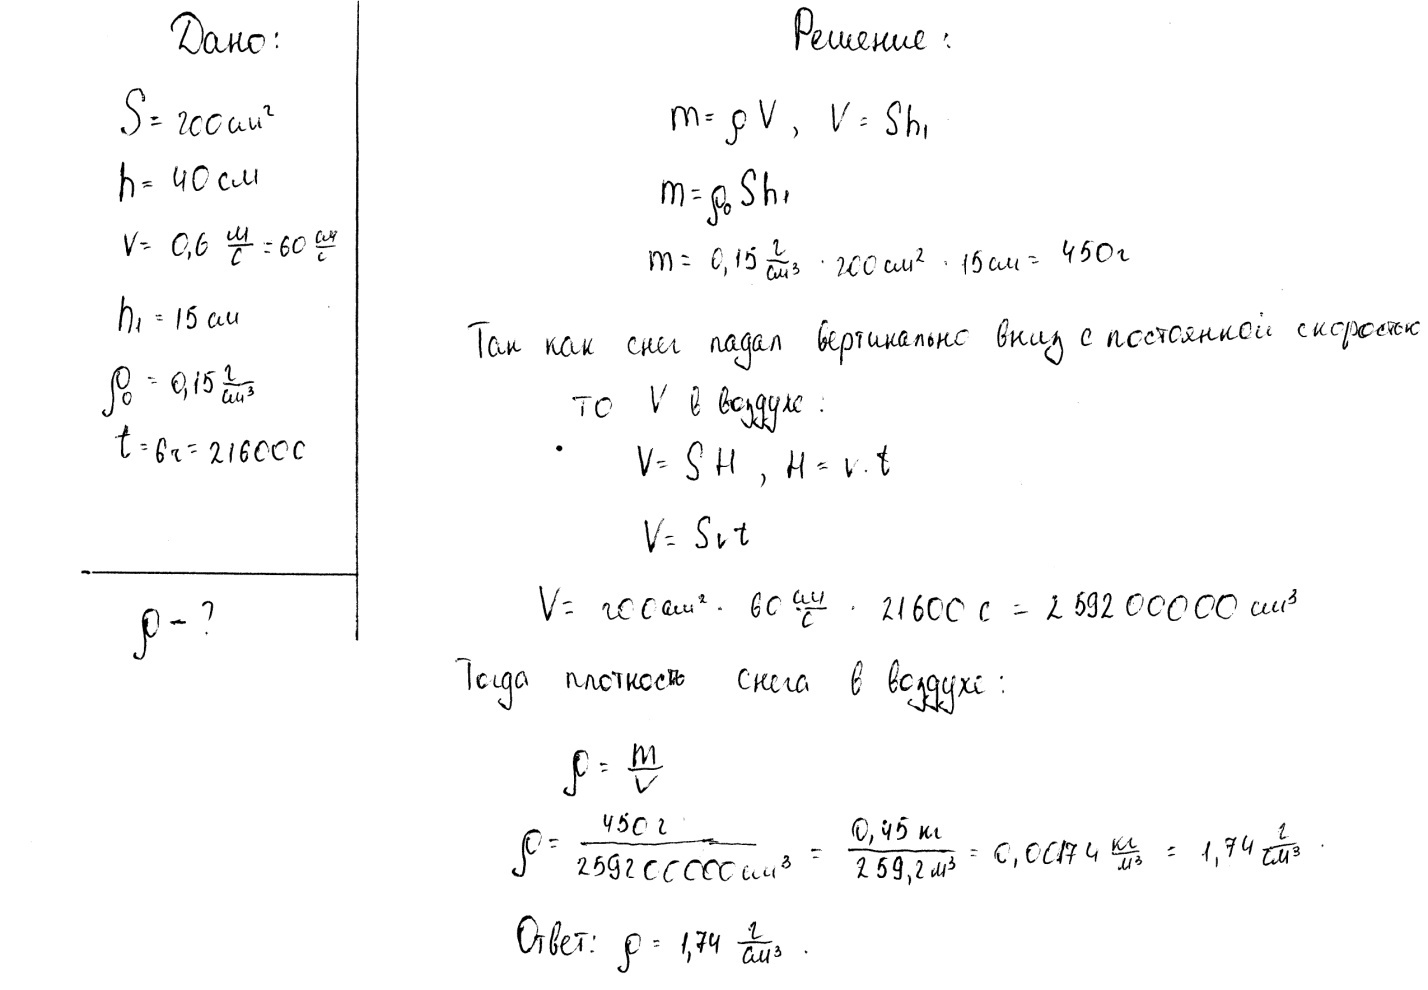 Дано:
S = 200 см²
h = 40 см
v = 0,6 м/с = 60 см/с
h₁ = 15 см
ρ₀ = 0,15 г/см³
t = 6ч = 21600 с
ρ - ?
Решение:
m = ρV, V = Sh₁
m = ρ₀Sh₁
m = 0,15 г/см³ · 200 см² · 15 см = 450 г
Так как снег падал вертикально вниз с постоянной скоростью
то V в воздухе:
V = SH, H = v·t
V = Svt
V = 200 см² · 60 см/с · 21600 с = 259200000 см³
Тогда плотность снега в воздухе:
ρ = m/V
ρ = 450 г/259200000 см³ = 0,45 кг/259,2 м³ = 0,00174 кг/м³ = 1,74 г/см³.
Ответ: ρ = 1,74 г/см³.